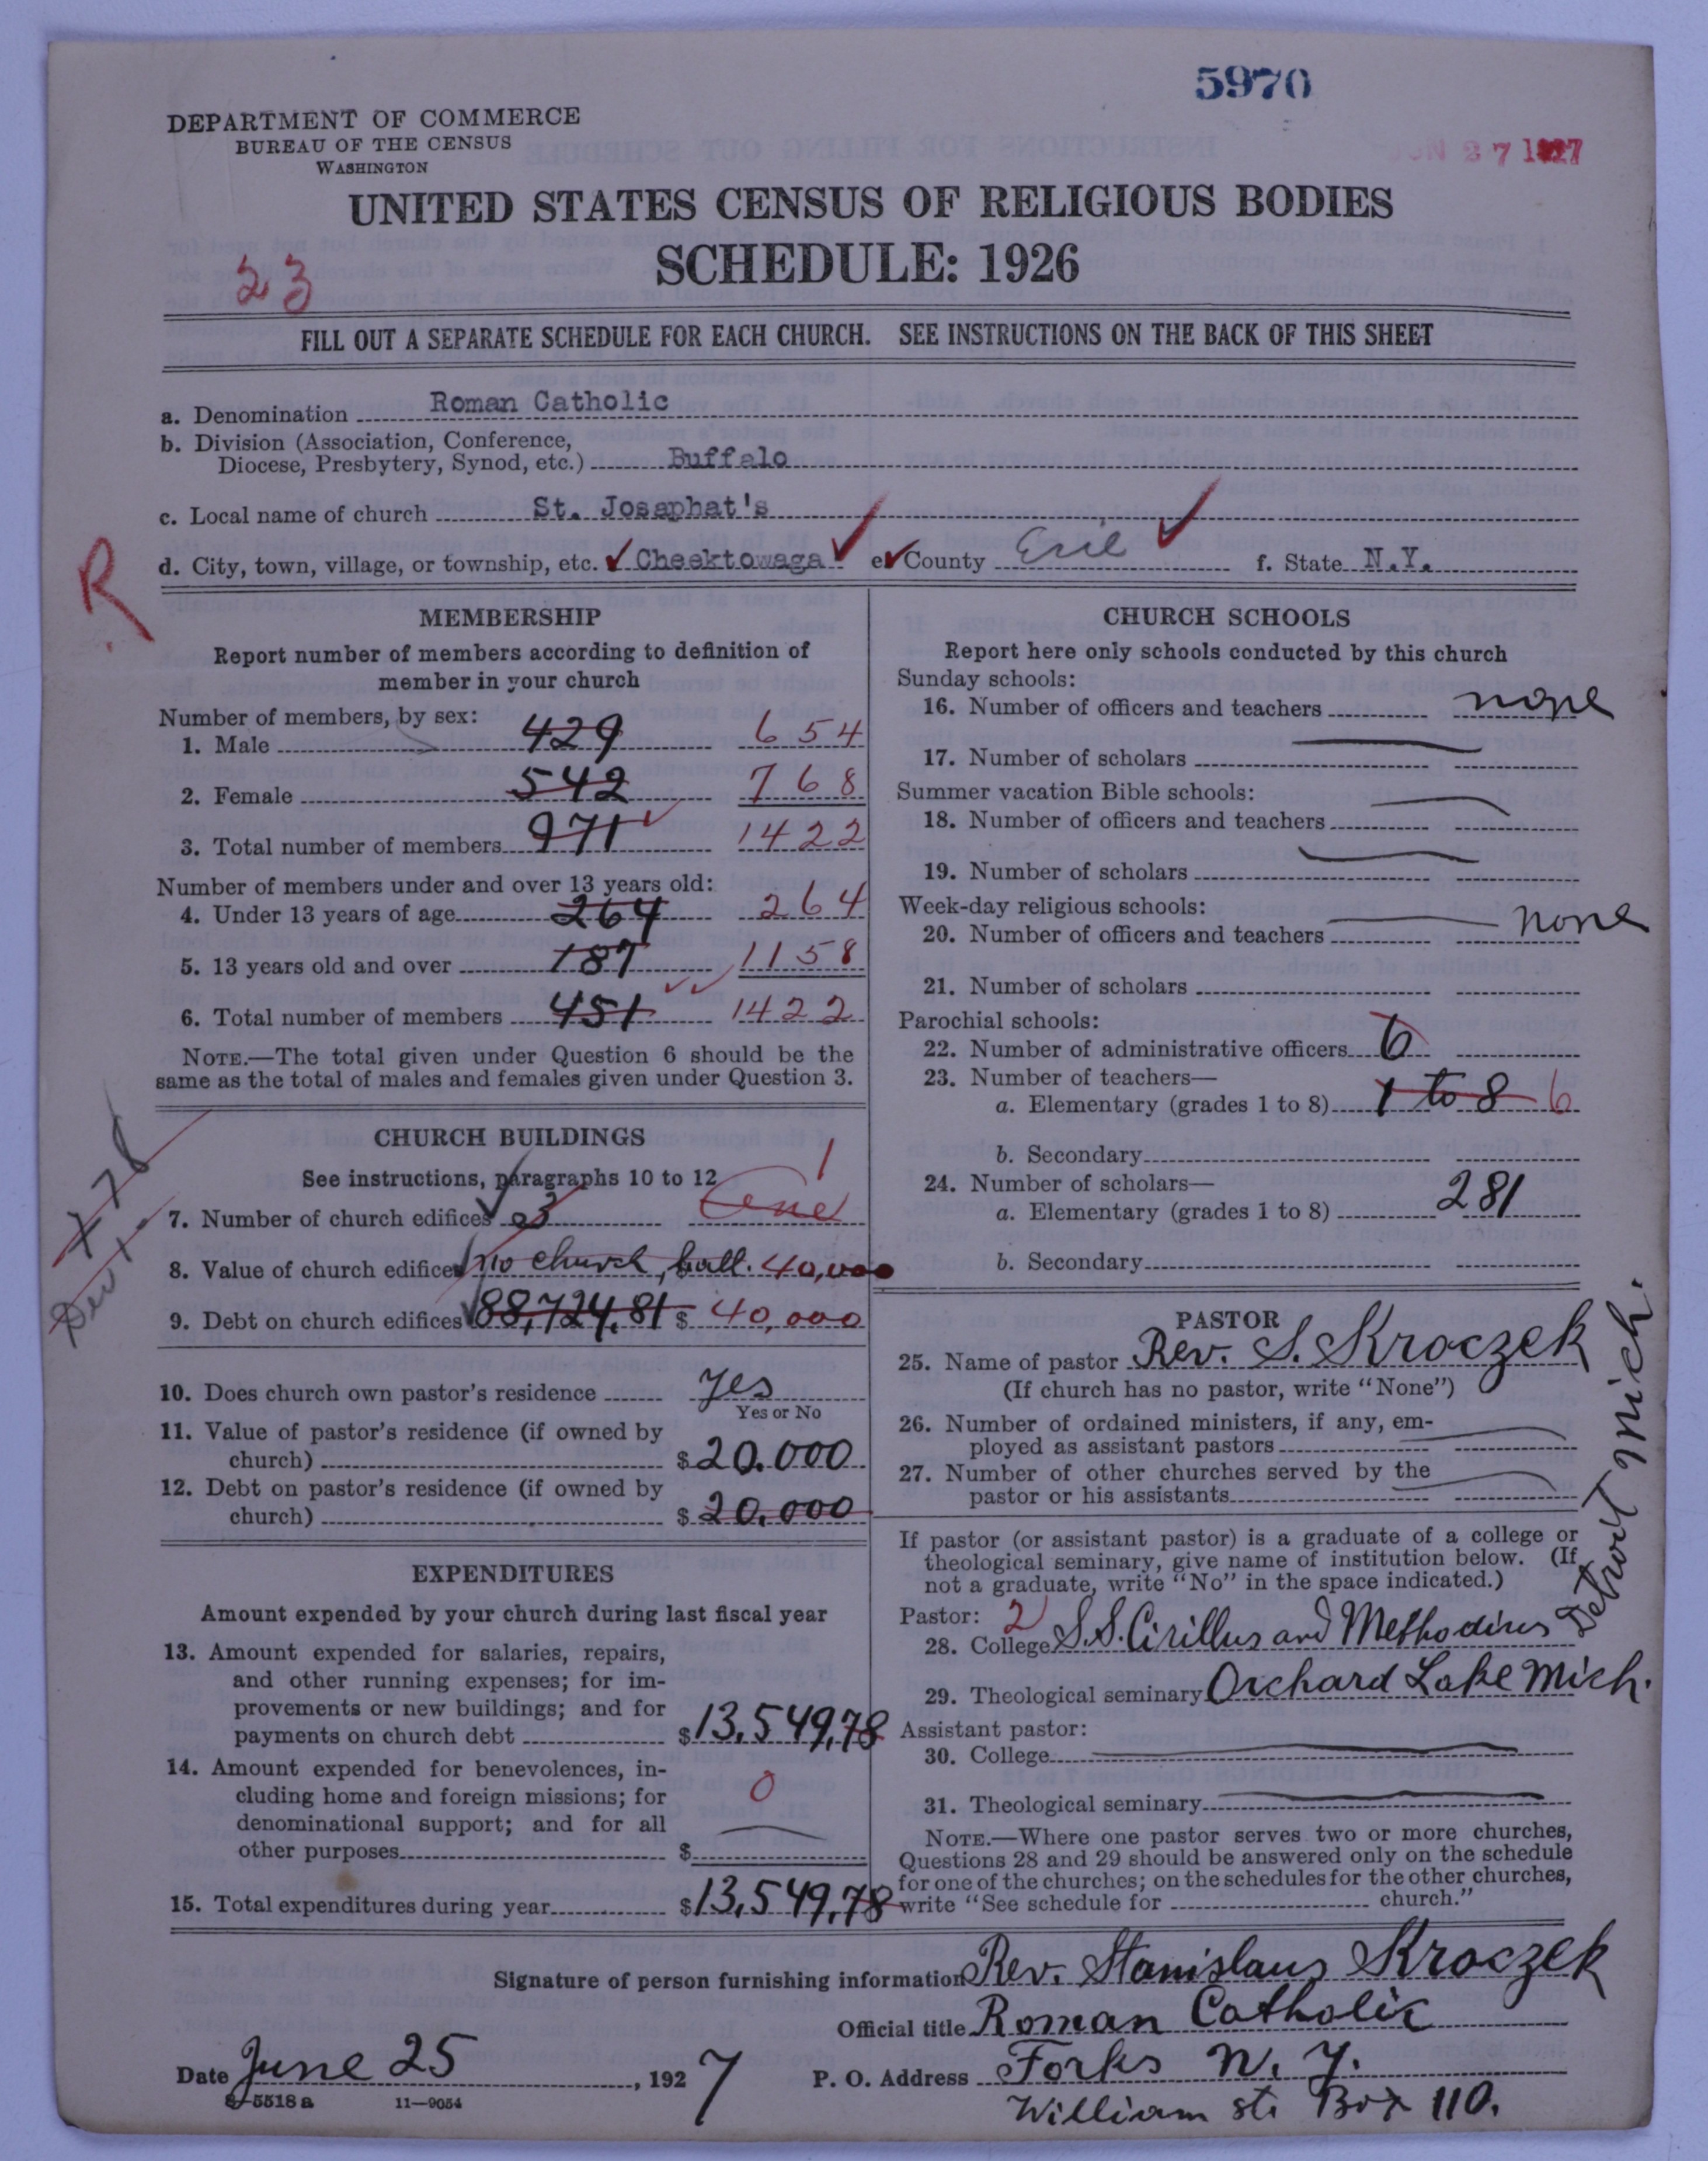 5970
DEPARTMENT OF COMMERCE
BUREAU OF THE CENSUS
WASHINGTON
JUN 27 1927
UNITED STATES CENSUS OF RELIGIOUS BODIES
SCHEDULE: 1926
23
FILL OUT A SEPARATE SCHEDULE FOR EACH CHURCH. SEE INSTRUCTIONS ON THE BACK OF THIS SHEET
a. Denomination Roman Catholic
b. Division (Association, Conference,
Diocese, Presbytery, Synod, etc.) Buffalo
c. Local name of church St. Josaphat's
d. City, town, village, or township, etc. Cheektowaga e. County Erie f. State N.Y.
R
MEMBERSHIP
Report number of members according to definition of
member in your church
Number of members, by sex:
1. Male 429 654
2. Female 542 768
3. Total number of members 971 1422
Number of members under and over 13 years old:
4. Under 13 years of age 264 264
5. 13 years old and over 187 1158
6. Total number of members 451 1422
NOTE.—The total given under Question 6 should be the
same as the total of males and females given under Question 3.
CHURCH BUILDINGS
See instructions, paragraphs 10 to 12
1
7. Number of church edifices 3 One
8. Value of church edifices no church, hall. 40,000
9. Debt on church edifices 88,724,81 $ 40,000
10. Does church own pastor's residence yes
Yes or No
11. Value of pastor's residence (if owned by
church) $ 20.000
12. Debt on pastor's residence (if owned by
church) $ 20.000
EXPENDITURES
Amount expended by your church during last fiscal year
13. Amount expended for salaries, repairs,
and other running expenses; for im-
provements or new buildings; and for
payments on church debt $ 13,549,78
14. Amount expended for benevolences, in-
cluding home and foreign missions; for
denominational support; and for all
other purposes $ 0
15. Total expenditures during year $ 13,549,78
CHURCH SCHOOLS
Report here only schools conducted by this church
Sunday schools:
16. Number of officers and teachers none
17. Number of scholars
Summer vacation Bible schools:
18. Number of officers and teachers
19. Number of scholars
Week-day religious schools:
20. Number of officers and teachers none
21. Number of scholars
Parochial schools:
22. Number of administrative officers 6
23. Number of teachers—
a. Elementary (grades 1 to 8) 1 to 8 6
b. Secondary
24. Number of scholars—
a. Elementary (grades 1 to 8) 281
b. Secondary
PASTOR
25. Name of pastor Rev. S. Kroczek
(If church has no pastor, write "None")
26. Number of ordained ministers, if any, em-
ployed as assistant pastors
27. Number of other churches served by the
pastor or his assistants
If pastor (or assistant pastor) is a graduate of a college or
theological seminary, give name of institution below. (If
not a graduate, write "No" in the space indicated.)
Pastor: 2
28. College S.S. Cirillus and Methodius Detroit Mich.
29. Theological seminary Orchard Lake Mich.
Assistant pastor:
30. College
31. Theological seminary
NOTE.—Where one pastor serves two or more churches,
Questions 28 and 29 should be answered only on the schedule
for one of the churches; on the schedules for the other churches,
write "See schedule for church."
Signature of person furnishing information Rev. Stanislaus Kroczek
Official title Roman Catholic
Date June 25, 1927 P. O. Address Forks N. Y.
William st. Box 110.
8-5518a 11-9054